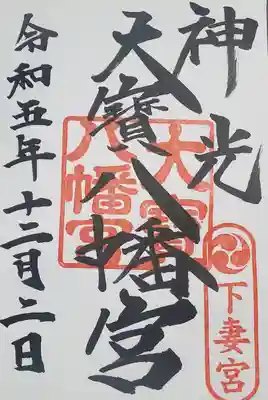 神光
天寳八幡宮
大宝八幡宮
下妻宮
令和五年十二月二日